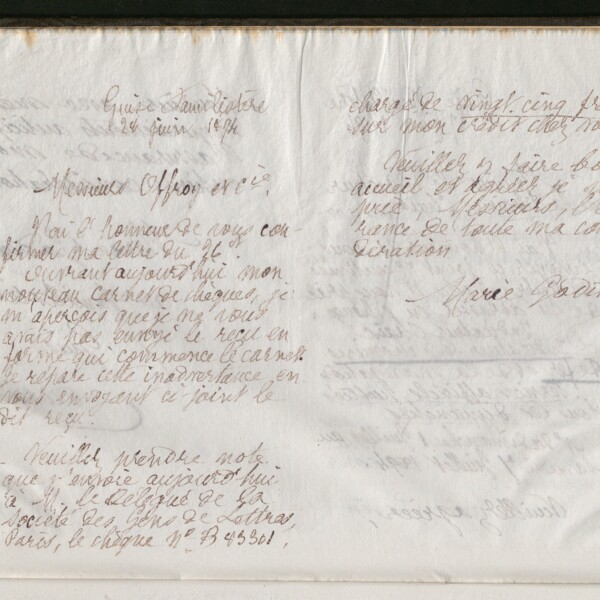 Guise Familistère
28 juin 1894
Messieurs Offroy et Cie,
J'ai l'honneur de vous con-
firmer ma lettre du 26 ct.
Ouvrant aujourd'hui mon
nouveau carnet de chèques, je
m'aperçois que je ne vous
avais pas envoyé le reçu en
forme qui commence le carnet.
Je répare cette inadvertance en
vous envoyant ci joint le
dit reçu.
Veuillez prendre note
que j'envoie aujourd'hui
à M. le Délégué de la
Société des Gens de Lettres,
Paris, le chèque n° B 43301,
chargé de vingt-cinq fr
sur mon crédit chez vo
Veuillez y faire bo
accueil et agréer je v
prie, Messieurs, l'
rance de toute ma co
dération
Marie Godin